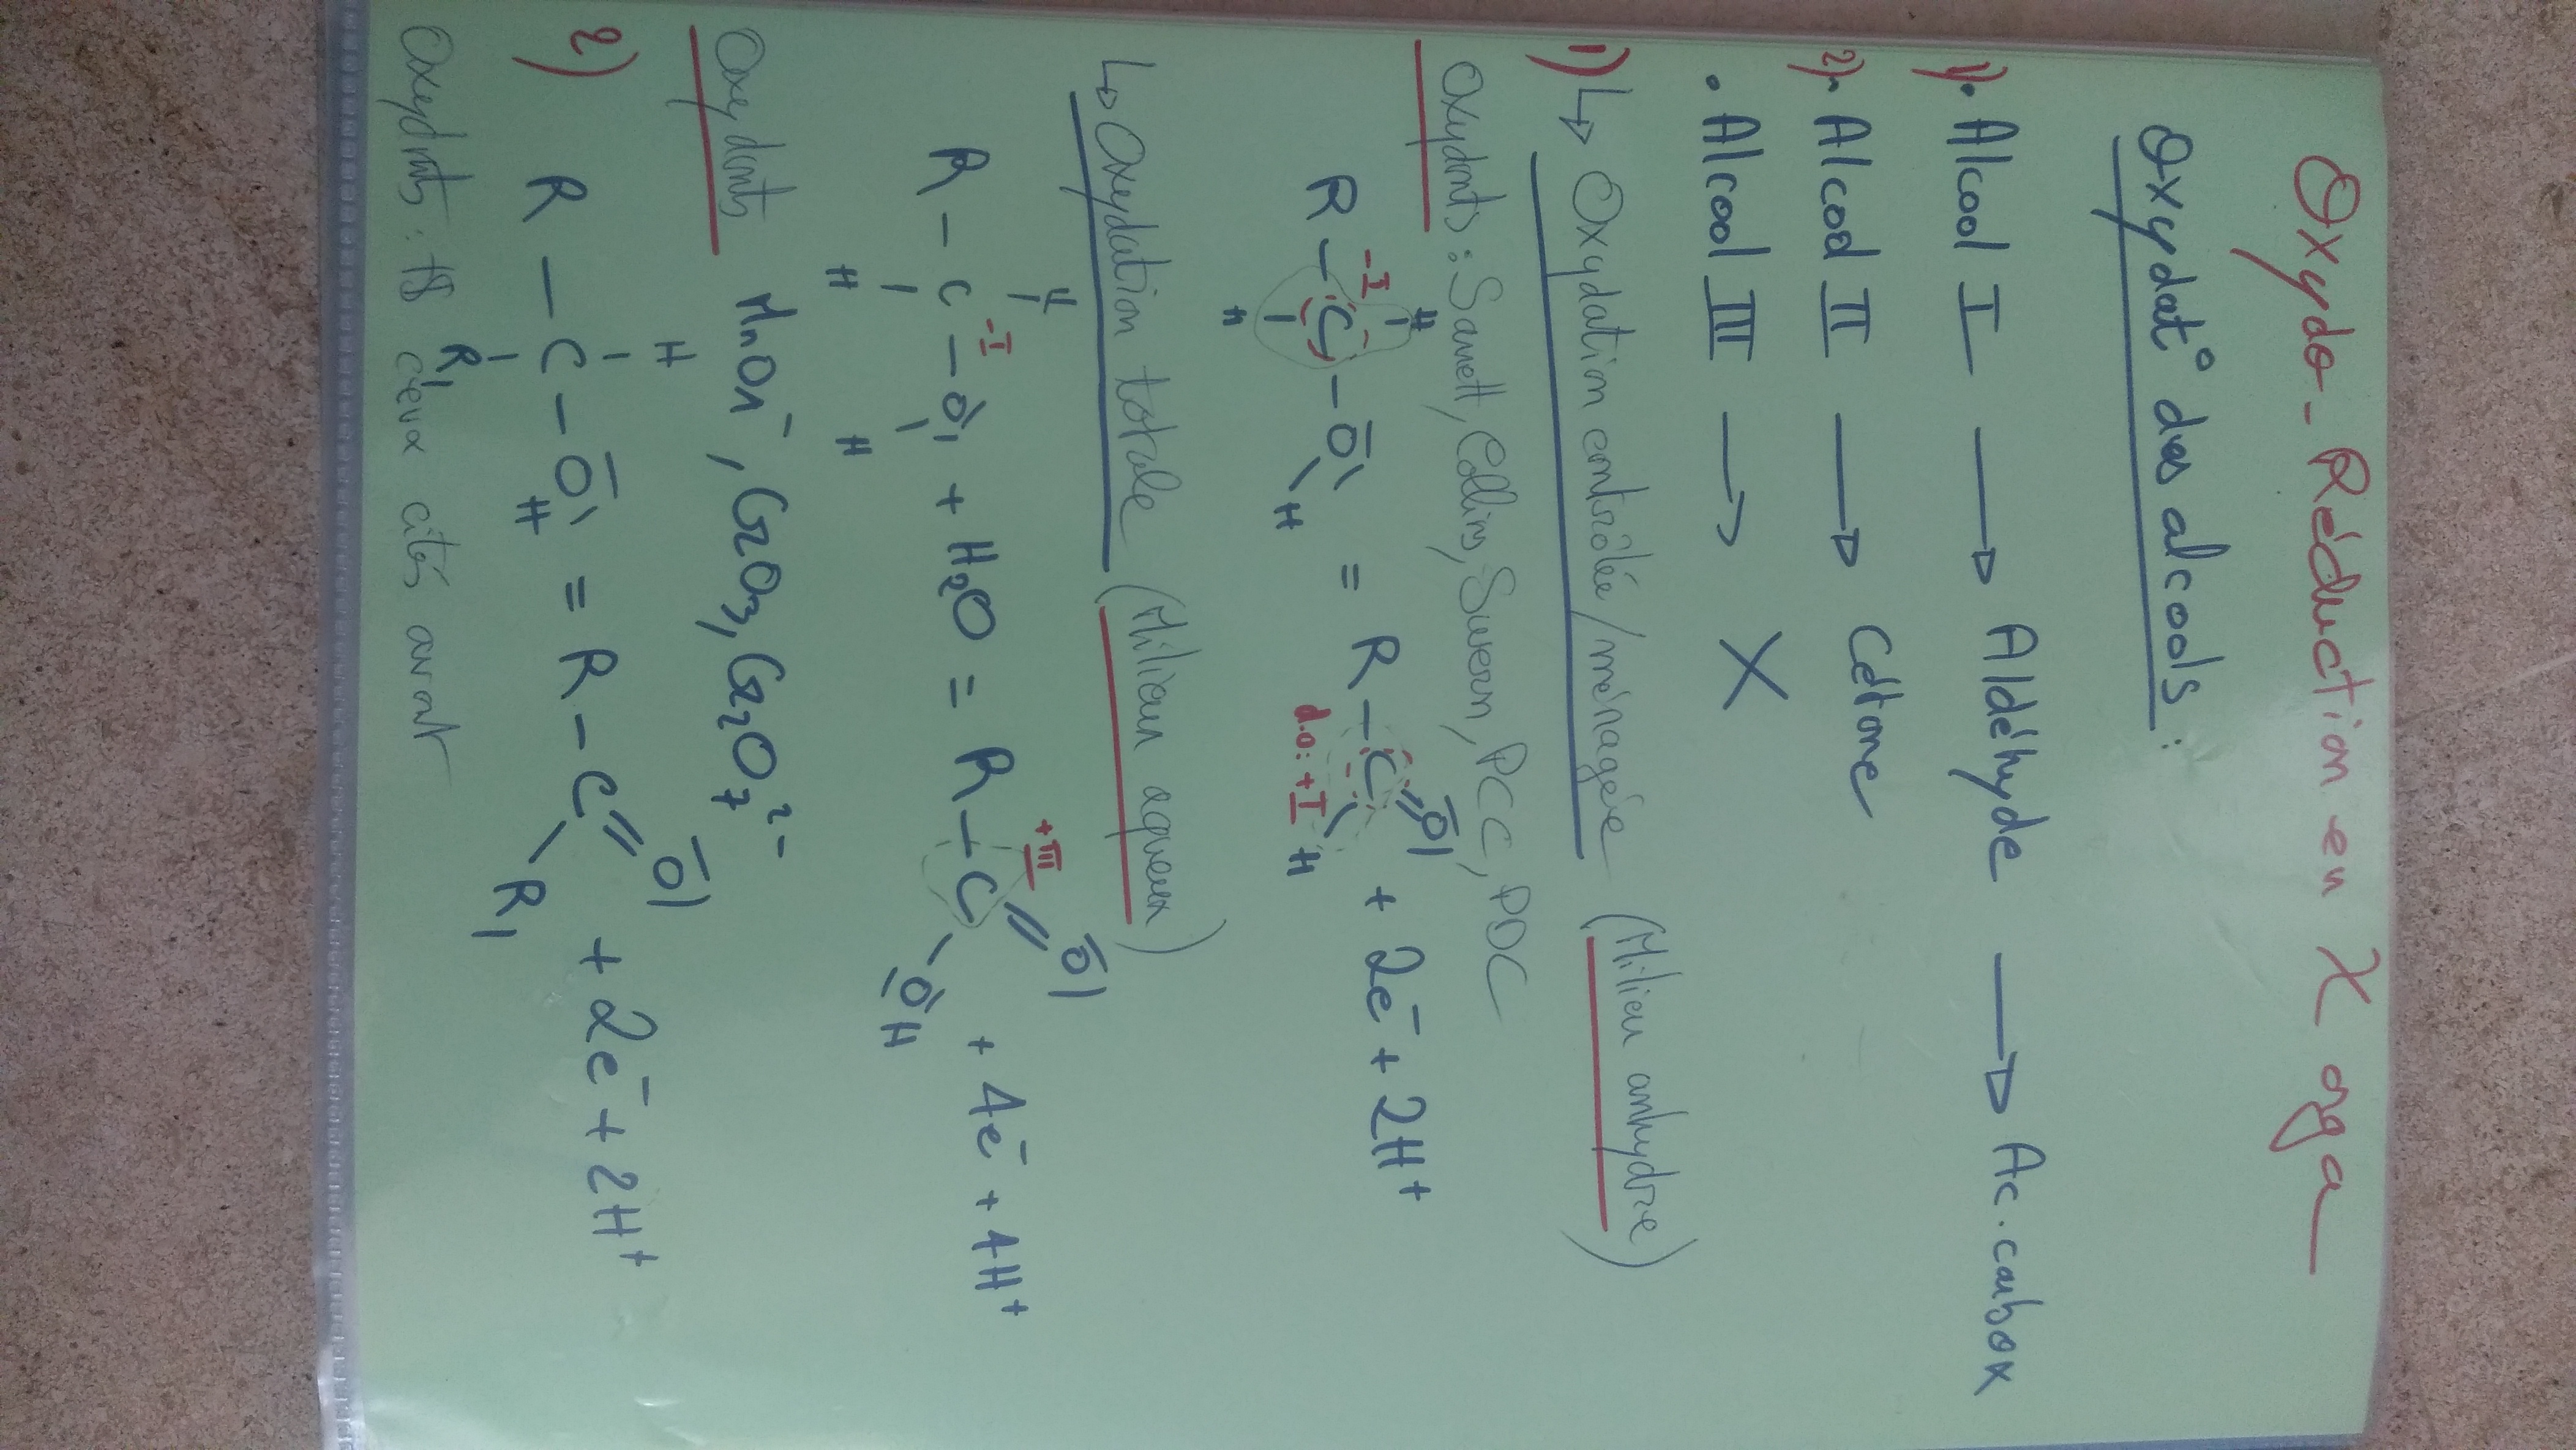 Oxydo-Réduction en χ orga
Oxydat° des alcools :
1). Alcool I → Aldéhyde → Ac. carbox
2). Alcool II → Cétone
. Alcool III → X
1) ↳ Oxydation contrôlée/ménagée (Milieu anhydre)
Oxydants : Sarrett, Collins, Swern, PCC, PDC
H
-I
R - C - O - H = R - C = O + 2e⁻ + 2H⁺
H
d.o: +I
H
↳ Oxydation totale (Milieu aqueux)
H
-I
+III
R - C - O + H₂O = R - C = O + 4e⁻ + 4H⁺
H
H
OH
Oxydants MnO₄⁻, CrO₃, Cr₂O₇²⁻
H
2) R - C - O = R - C = O + 2e⁻ + 2H⁺
R₁
H
R₁
Oxydants : ts ceux cités avant